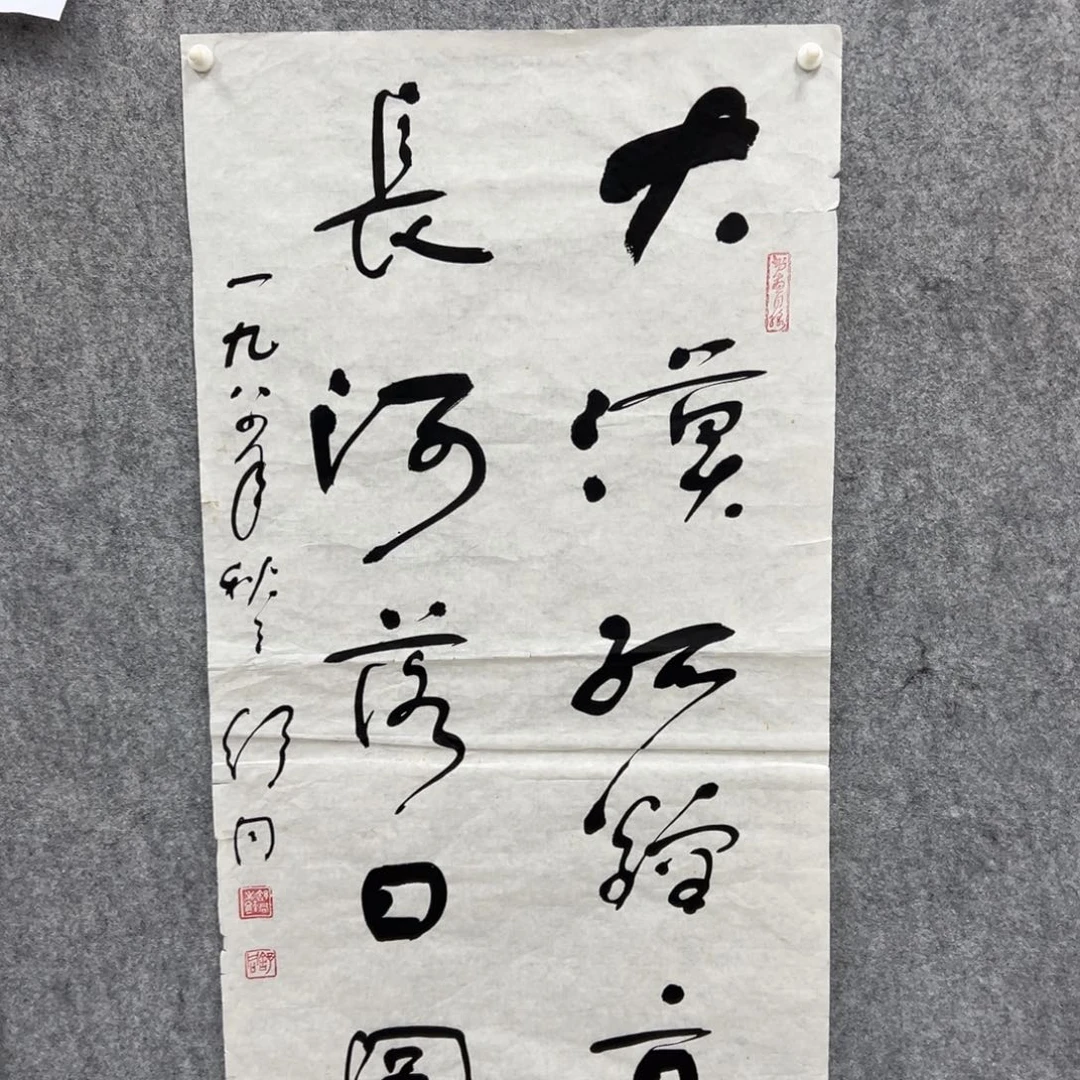 大漠孤煙直
長河落日圓
一九八四年秋 舒同